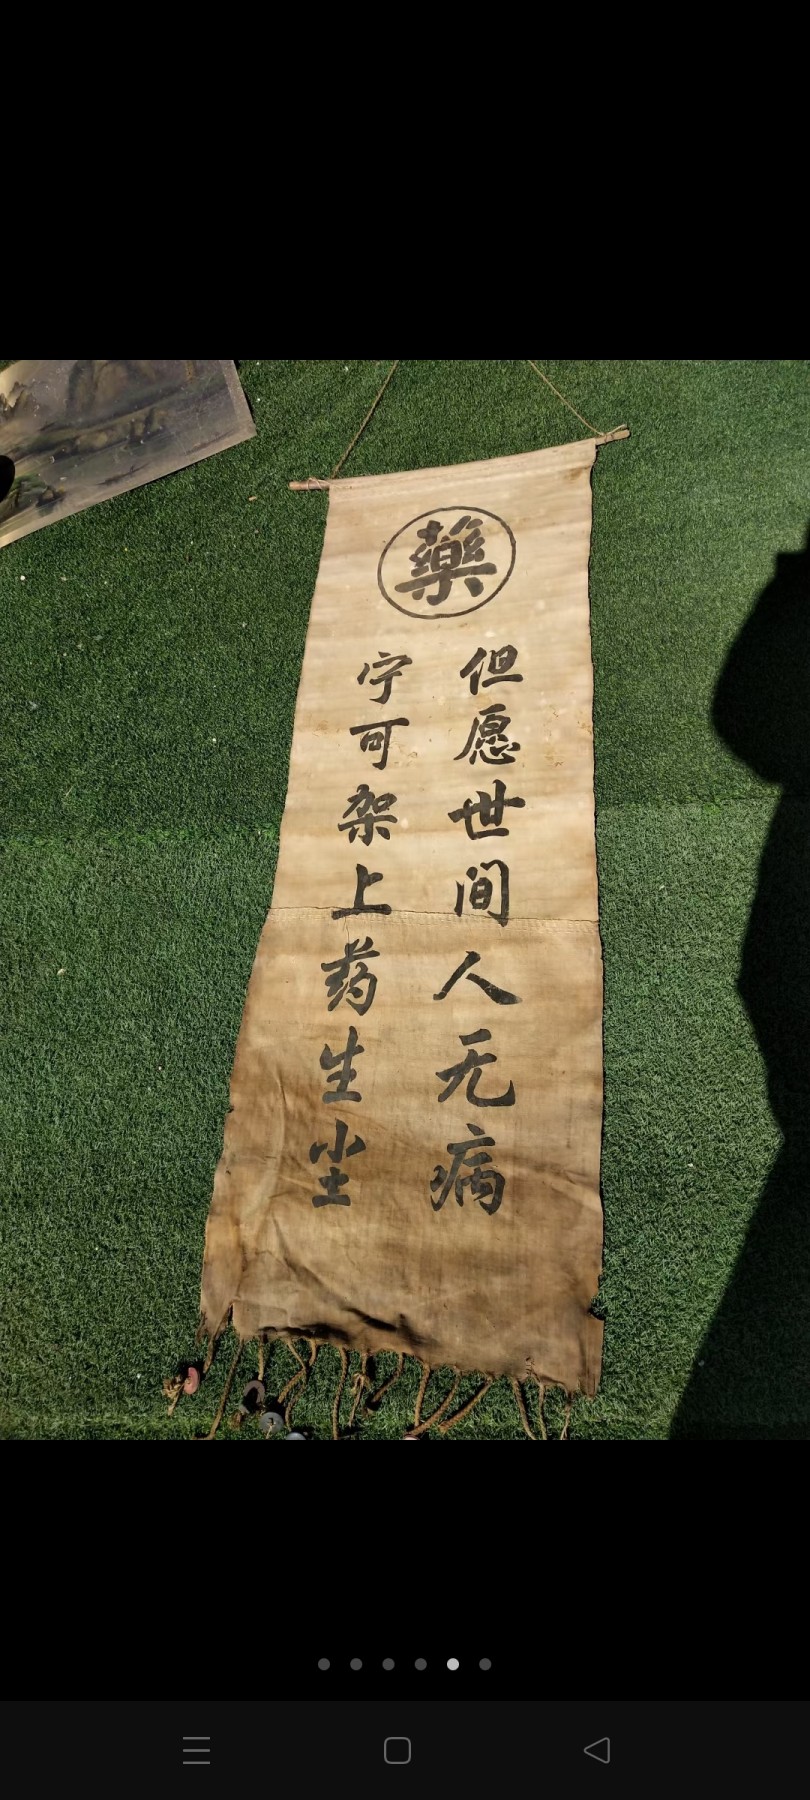 藥
但愿世间人无病
宁可架上药生尘